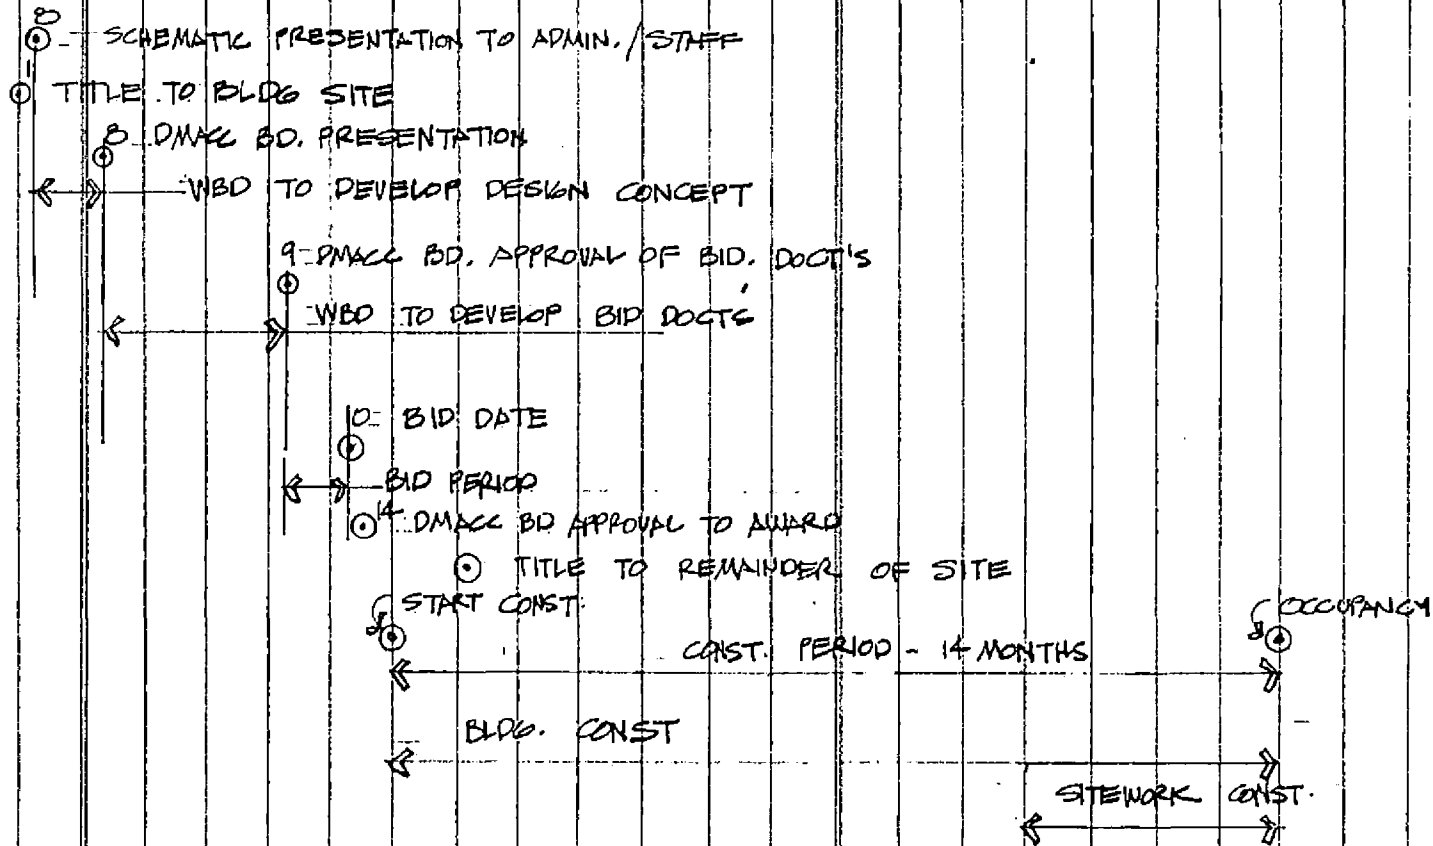 8 - SCHEMATIC PRESENTATION TO ADMIN./STAFF
1
TITLE TO BLDG SITE
8 DMACC BD. PRESENTATION
WBD TO DEVELOP DESIGN CONCEPT
9 - DMACC BD. APPROVAL OF BID. DOCT'S
WBD TO DEVELOP BID DOCT'S
10 - BID DATE
BID PERIOD
14 DMACC BD APPROVAL TO AWARD
TITLE TO REMAINDER OF SITE
START CONST.
OCCUPANCY
CONST. PERIOD - 14 MONTHS
BLDG. CONST
SITEWORK CONST.